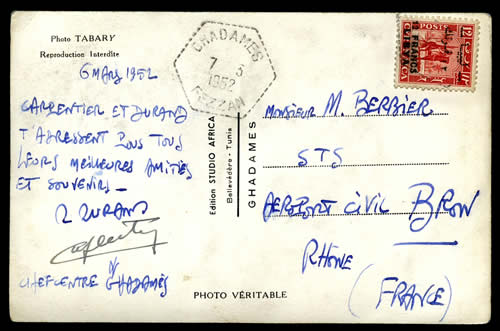 Photo TABARY
Reproduction Interdite
6 MARS 1952
CARPENTIER ET DURAND
T'ADRESSENT POUS TOUS
LEURS MEILLEURES AMITIÉS
ET SOUVENIRS _
R DURAND
CHEF CENTRE GHADAMÈS
GHADAMES
7 3
1952
FEZZAN
Edition STUDIO AFRICA
Bellevédère - Tunis
GHADAMES
12
12 FRANCS
MONSIEUR M. BERBIER
STS
AEROPORT CIVIL BRON
RHÔNE
(FRANCE)
PHOTO VÉRITABLE